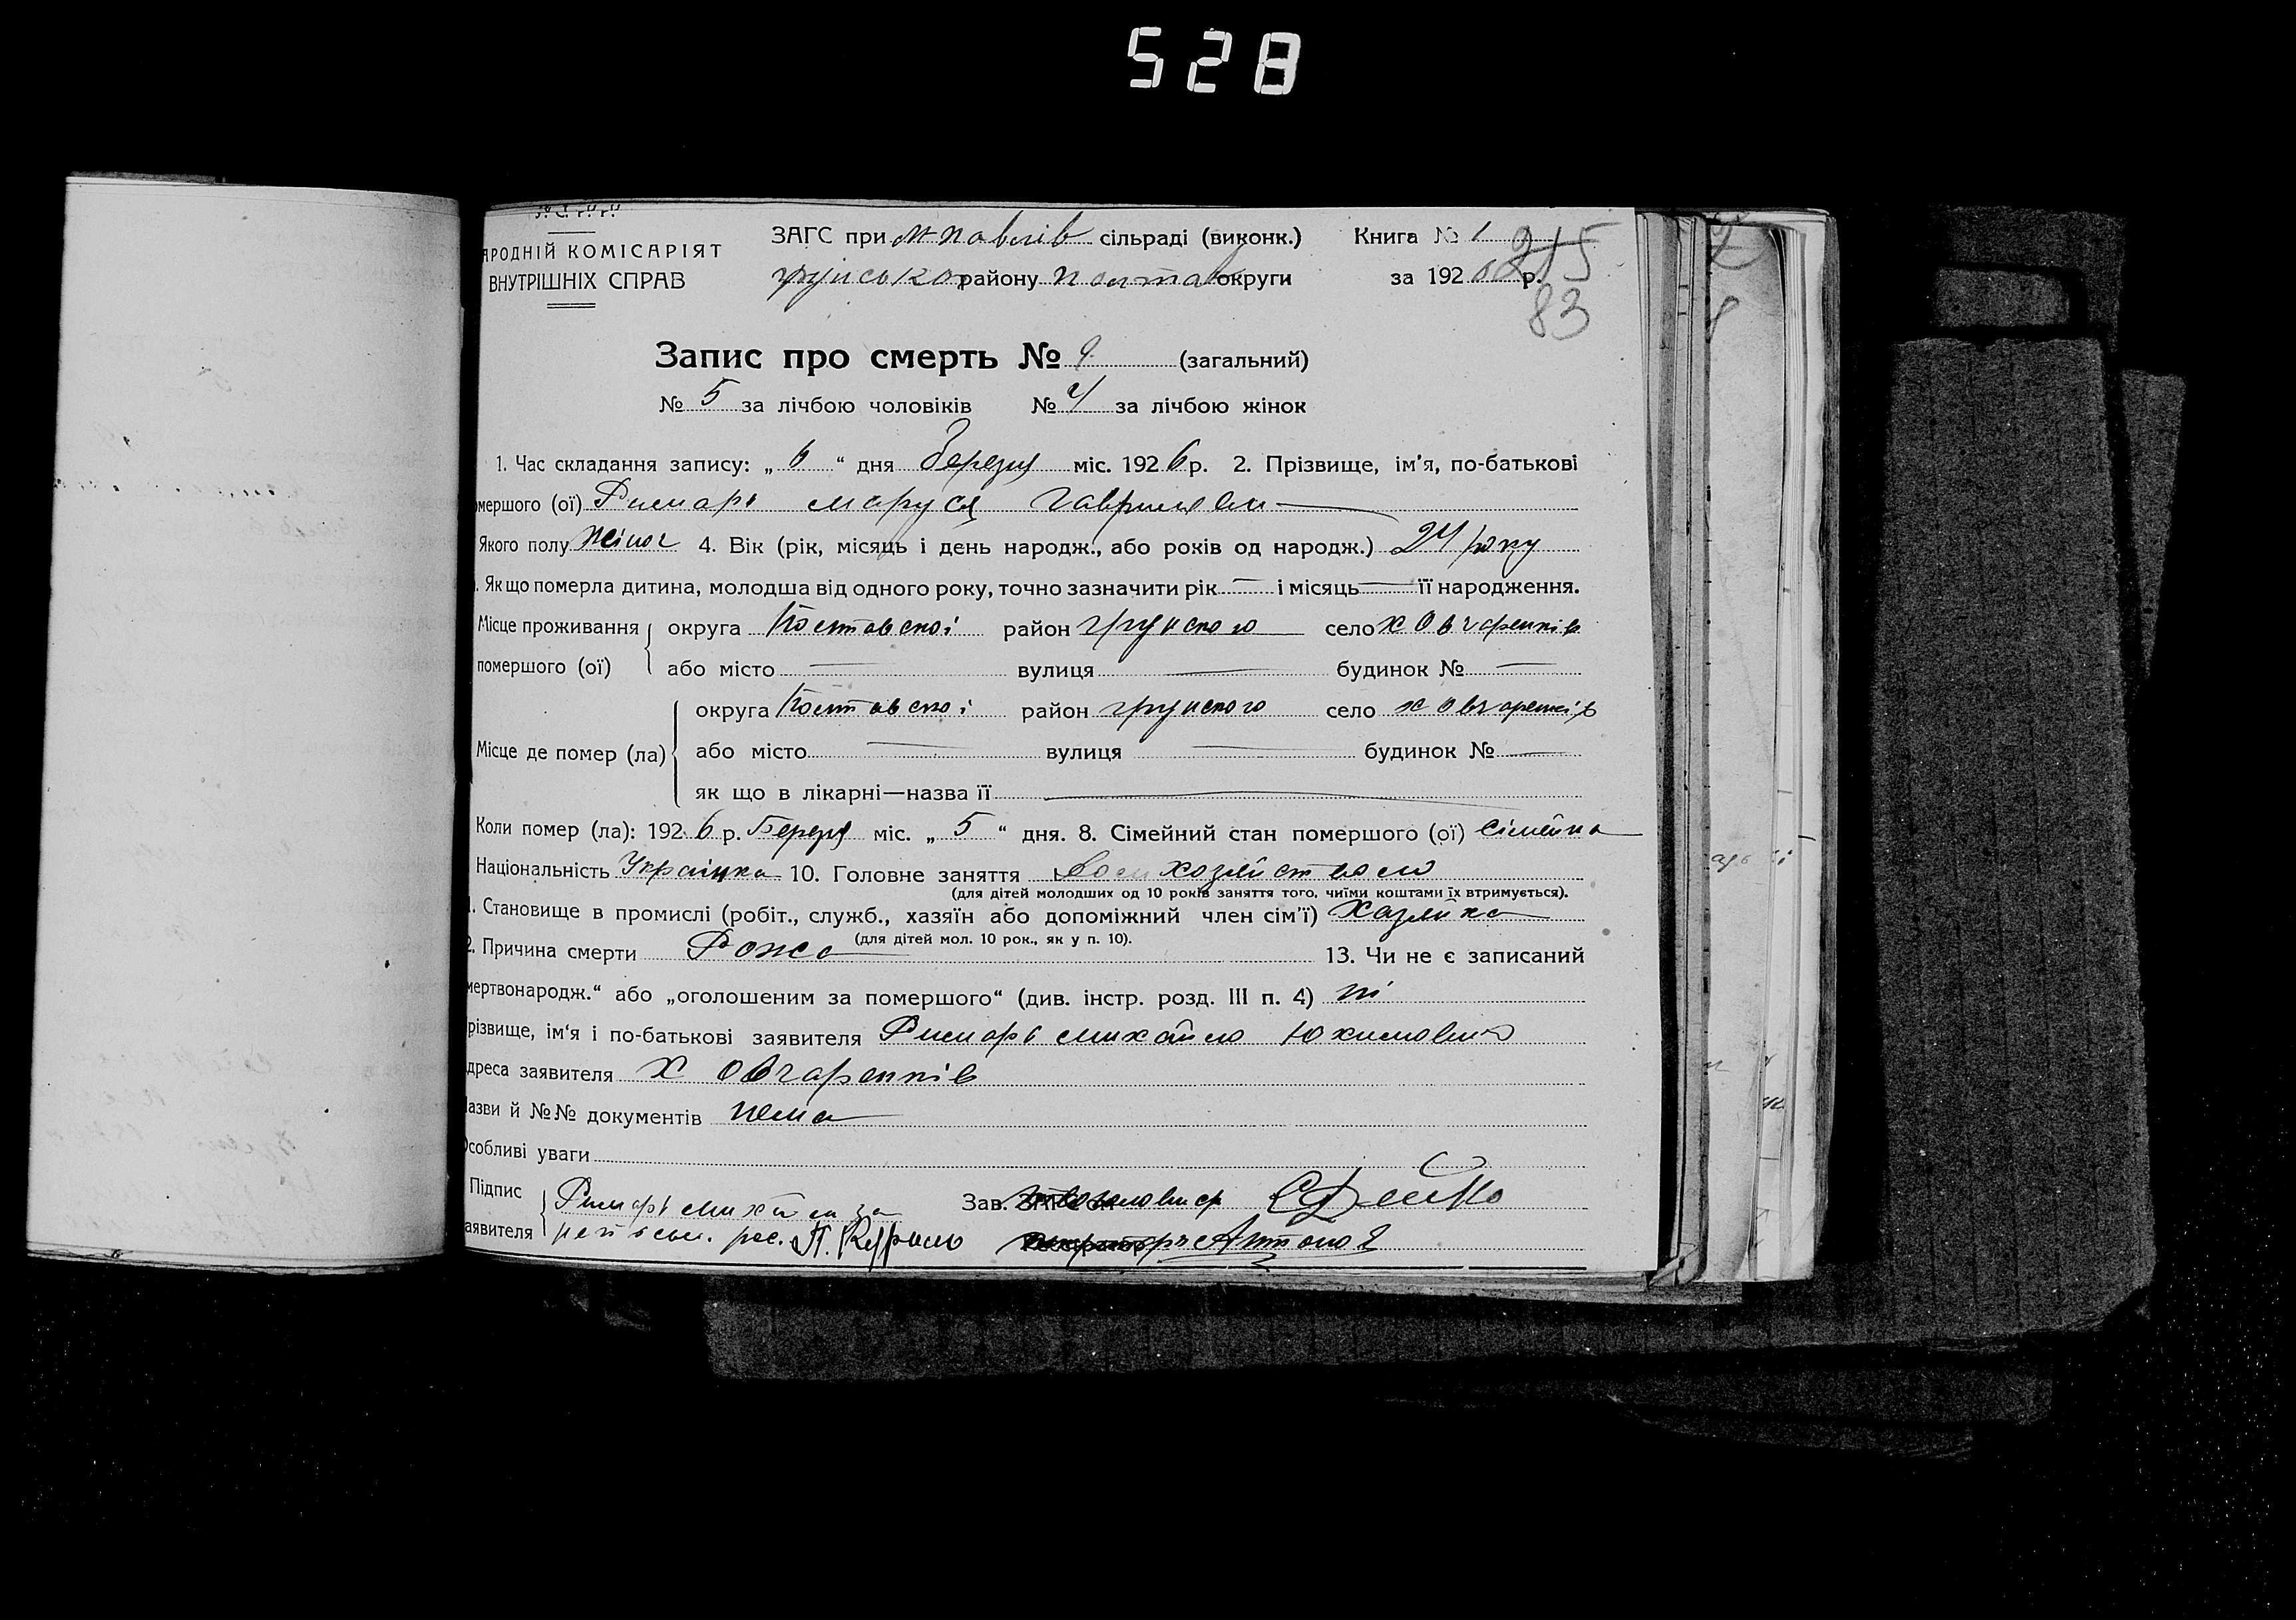 528
У. С. Р. Р.
АРОДНІЙ КОМІСАРІЯТ
ВНУТРІШНІХ СПРАВ
ЗАГС при сільраді (виконк.) Книга № 1
району Полтав округи за 1926 р.
215
83
Запис про смерть № 9 (загальний)
№ 5 за лічбою чоловіків № 4 за лічбою жінок
1. Час складання запису: „ 6 “ дня березня міс. 1926 р. 2. Прізвище, ім’я, по-батькові
мершого (ої) Римарь Маруся Гаврилов
Якого полу жіноч 4. Вік (рік, місяць і день народж., або років од народж.) 24 року
. Як що померла дитина, молодша від одного року, точно зазначити рік — і місяць — її народження.
Місце проживання округа Полтавскоі район Грунского село х Овчаренків
помершого (ої) або місто — вулиця — будинок № —
округа Полтавскоі район Грунского село х Овчаренків
Місце де помер (ла) або місто — вулиця — будинок № —
як що в лікарні—назва її —
Коли помер (ла): 1926 р. Березня міс. „ 5 “ дня. 8. Сімейний стан помершого (ої) сімейна
Національність Українка 10. Головне заняття хозяйством
(для дітей молодших од 10 років заняття того, чиїми коштами їх втримується).
1. Становище в промислі (робіт., служб., хазяїн або допоміжний член сім’ї) Хазяйка
(для дітей мол. 10 рок., як у п. 10).
2. Причина смерти Рожа 13. Чи не є записаний
мертвонародж.“ або „оголошеним за помершого“ (див. інстр. розд. III п. 4) ні
різвище, ім‘я і по-батькові заявителя Римарь Михайло Юхимович
дреса заявителя х Овчаренків
азви й №№ документів нема
Особливі уваги
Підпис Римарь Михайло за Зав.
аявителя рос. П. Кирило